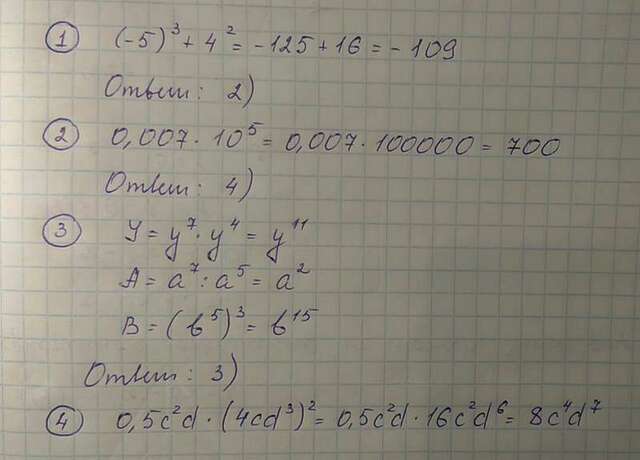 ① (-5)³ + 4² = -125 + 16 = -109
Ответ: 2)
② 0,007 · 10⁵ = 0,007 · 100000 = 700
Ответ: 4)
③ У = y⁷ · y⁴ = y¹¹
А = a⁷ : a⁵ = a²
В = (b⁵)³ = b¹⁵
Ответ: 3)
④ 0,5c²d · (4cd³)² = 0,5c²d · 16c²d⁶ = 8c⁴d⁷